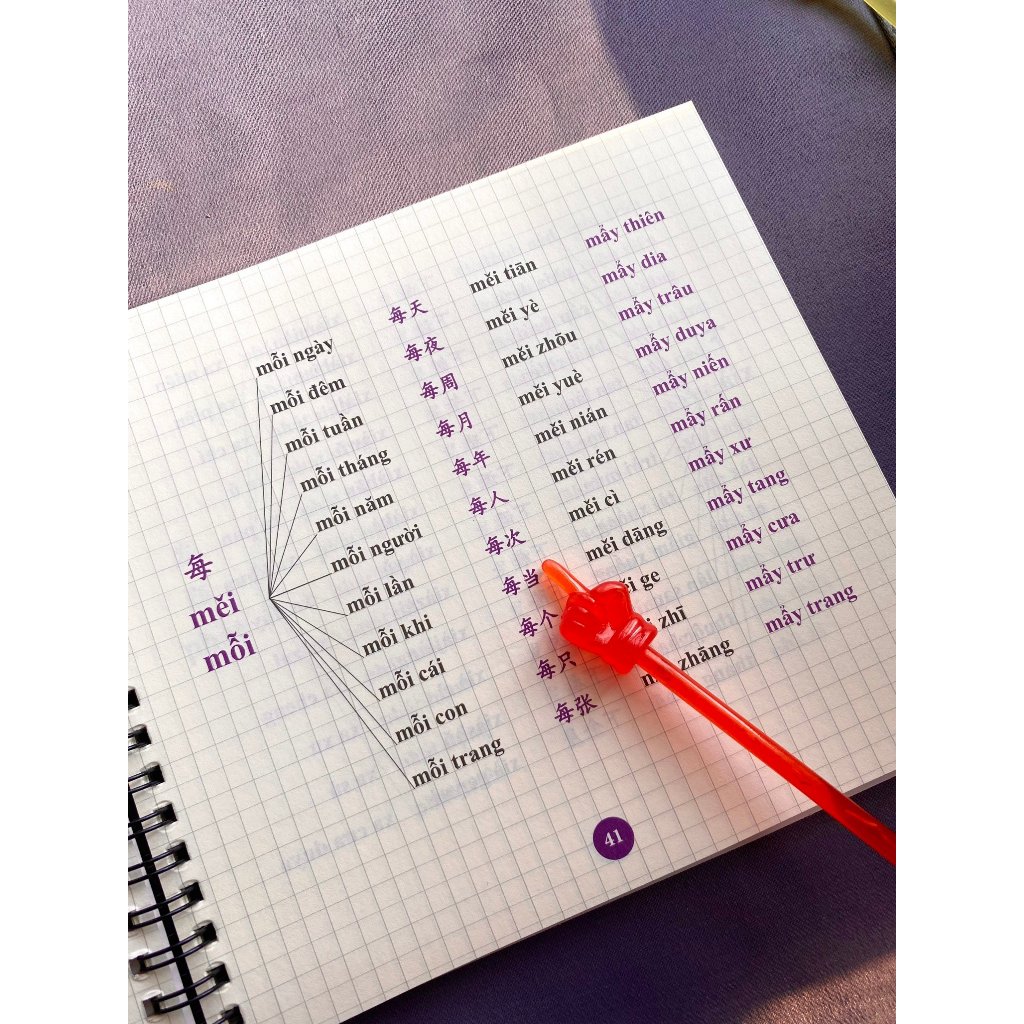 每
měi
mỗi
mỗi ngày 每天 měi tiān mẩy thiên
mỗi đêm 每夜 měi yè mẩy dia
mỗi tuần 每周 měi zhōu mẩy trâu
mỗi tháng 每月 měi yuè mẩy duya
mỗi năm 每年 měi nián mẩy niến
mỗi người 每人 měi rén mẩy rấn
mỗi lần 每次 měi cì mẩy xư
mỗi khi 每当 měi dāng mẩy tang
mỗi cái 每个 ge mẩy cưa
mỗi con 每只 zhī mẩy trư
mỗi trang 每张 zhāng mẩy trang
41